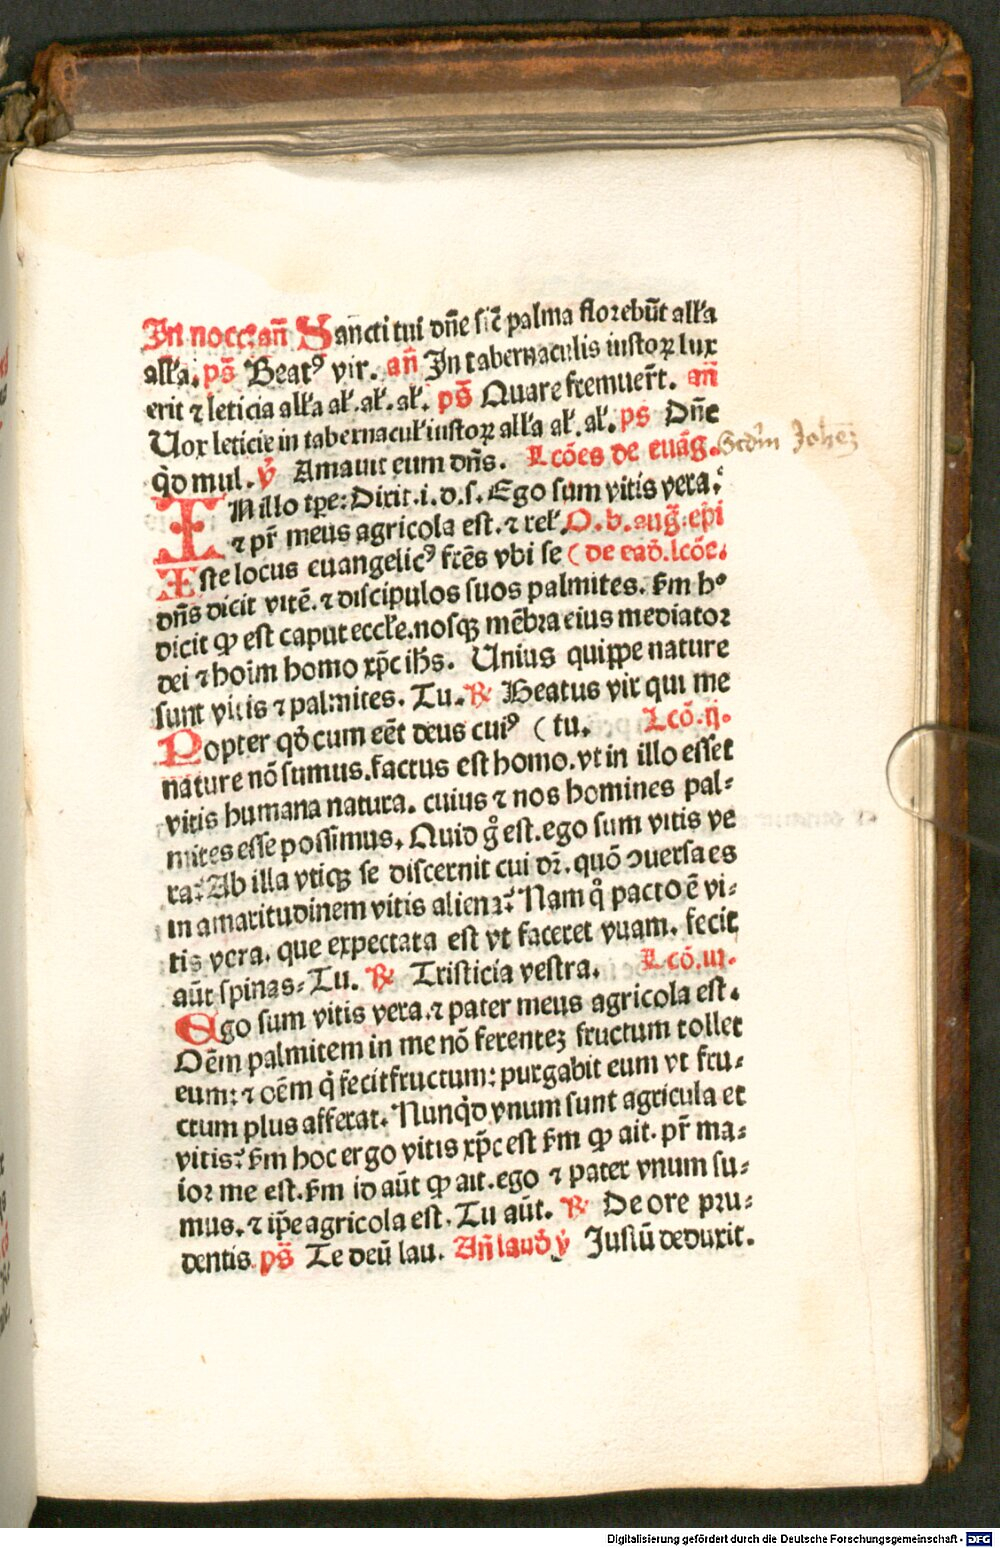 In noct: an̄ Sancti tui dn̄e sic̄ palma florebūt alła
alła. ps̄ Beatꝰ vir. an̄ In tabernaculis iustoꝝ lux
erit ⁊ leticia alła ał. ał. ał. ps̄ Quare fremuer̄t. an̄
Uox leticie in tabernacuł iustoꝝ alła ał. ał. ps Dn̄e
q̄d mul. ℣ Amauit eum dn̄s. Lcōes de euāg. Scd'm Johēꝫ
IN illo tp̄e: Dixit .i. d. s. Ego sum vitis vera:
⁊ pr̄ meus agricola est. ⁊ reł. O. b. auḡ: ep̄i
Iste locus euangelicꝰ fr̄es vbi se (de ead̄. lcōe.
dn̄s dicit vitē. ⁊ discipulos suos palmites. s̄m hͦ
dicit ꝙ est caput eccłe. nosqꝫ mēbra eius mediator
dei ⁊ hoīm homo xp̄c ih̄s. Unius quippe nature
sunt vitis ⁊ palmites. Tu. ℟ Beatus vir qui me
Propter qd̄ cum eēt deus cuiꝰ (tu. Lcō. ij.
nature nō sumus. factus est homo. vt in illo esset
vitis humana natura. cuius ⁊ nos homines pal-
mites esse possimus. Quid g̊ est. ego sum vitis ve
ra? Ab illa vtiqꝫ se discernit cui dr̄. quō ꝯuersa es
in amaritudinem vitis aliena? Nam q̊ pacto ē vi-
tis vera. que expectata est vt faceret vuam. fecit
aūt spinas. Tu. ℟ Tristicia vestra. Lcō. iii.
Ego sum vitis vera. ⁊ pater meus agricola est.
Oēm palmitem in me nō ferenteꝫ fructum tollet
eum: ⁊ oēm q̄ fecit fructum: purgabit eum vt fru-
ctum plus afferat. Nunq̄d vnum sunt agricula et
vitis? s̄m hoc ergo vitis xp̄c est s̄m ꝙ ait. pr̄ ma-
ior me est. s̄m id aūt ꝙ ait. ego ⁊ pater vnum su-
mus. ⁊ ip̄e agricola est. Tu aūt. ℟ De ore pru-
dentis ps̄ Te deū lau. An̄ laud̄ ℣ Justū deduxit.
Digitalisierung gefördert durch die Deutsche Forschungsgemeinschaft - DFG